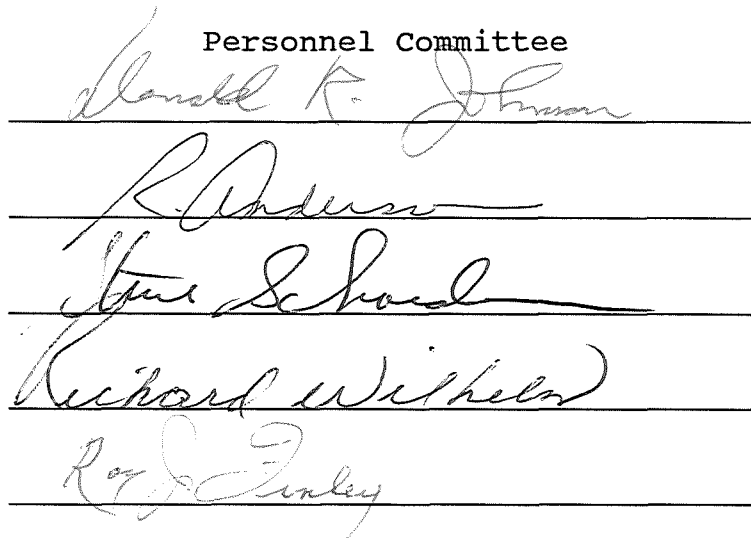 Personnel Committee
Donald R. Johnson
R. Anderson
Steve
Richard Wilhelm
Roy J. Finley